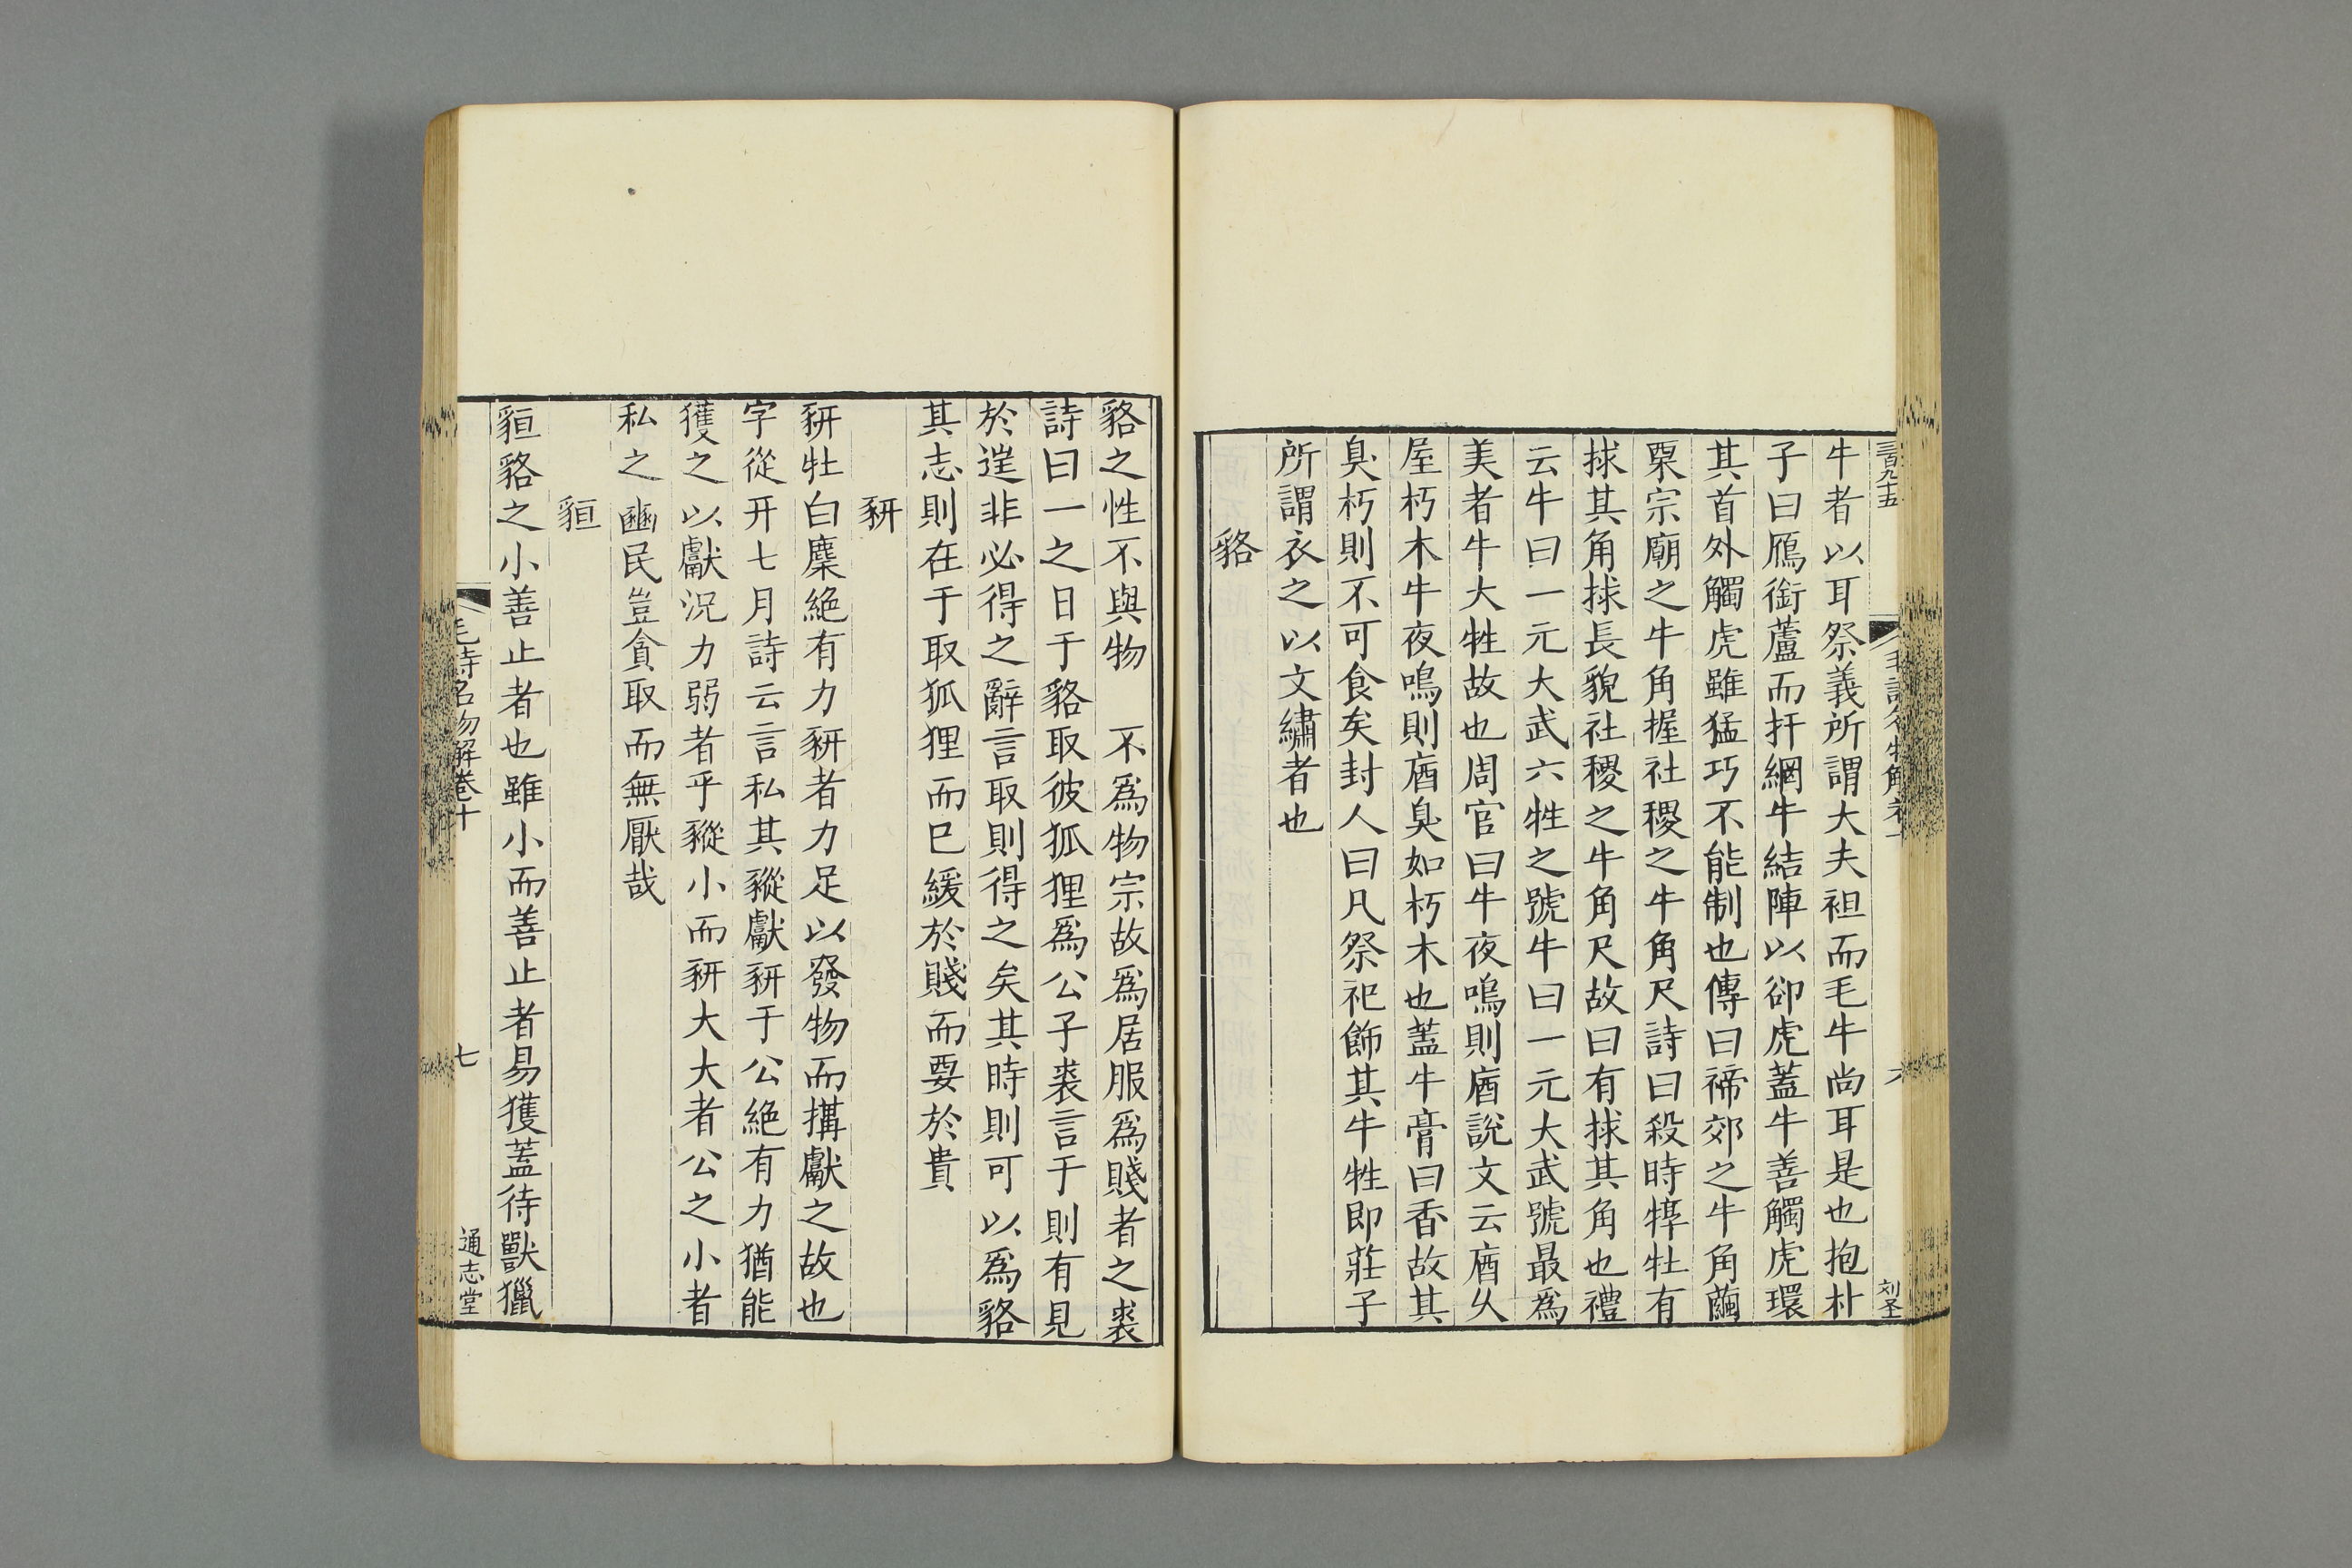 三百九十五
牛者以耳祭義所謂大夫袒而毛牛尚耳是也抱朴
子曰鴈銜蘆而扞網牛結陣以卻虎蓋牛善觸虎環
其首外觸虎雖猛巧不能制也傳曰禘郊之牛角繭
栗宗廟之牛角握社稷之牛角尺詩曰殺時犉牡有
捄其角捄長貌社稷之牛角尺故曰有捄其角也禮
云牛曰一元大武六牲之號牛曰一元大武號最為
美者牛大牲故也周官曰牛夜鳴則庮說文云庮久
屋朽木牛夜鳴則庮臭如朽木也蓋牛膏曰香故其
臭朽則不可食矣封人曰凡祭祀飾其牛牲即莊子
所謂衣之以文繡者也
貉
六
刘圣
貉之性不與物　不爲物宗故爲居服爲賤者之裘
詩曰一之日于貉取彼狐狸爲公子裘言于則有見
於逆非必得之辭言取則得之矣其時則可以爲貉
其志則在于取狐狸而已緩於賤而要於貴
豣
豣牡白麋絶有力豣者力足以發物而搆獻之故也
字從幵七月詩云言私其豵獻豣于公絶有力猶能
獲之以獻況力弱者乎豵小而豣大大者公之小者
私之豳民豈貪取而無厭哉
貆
貆貉之小善止者也雖小而善止者易獲蓋待獸獵
毛詩名物解卷十
七
通志堂